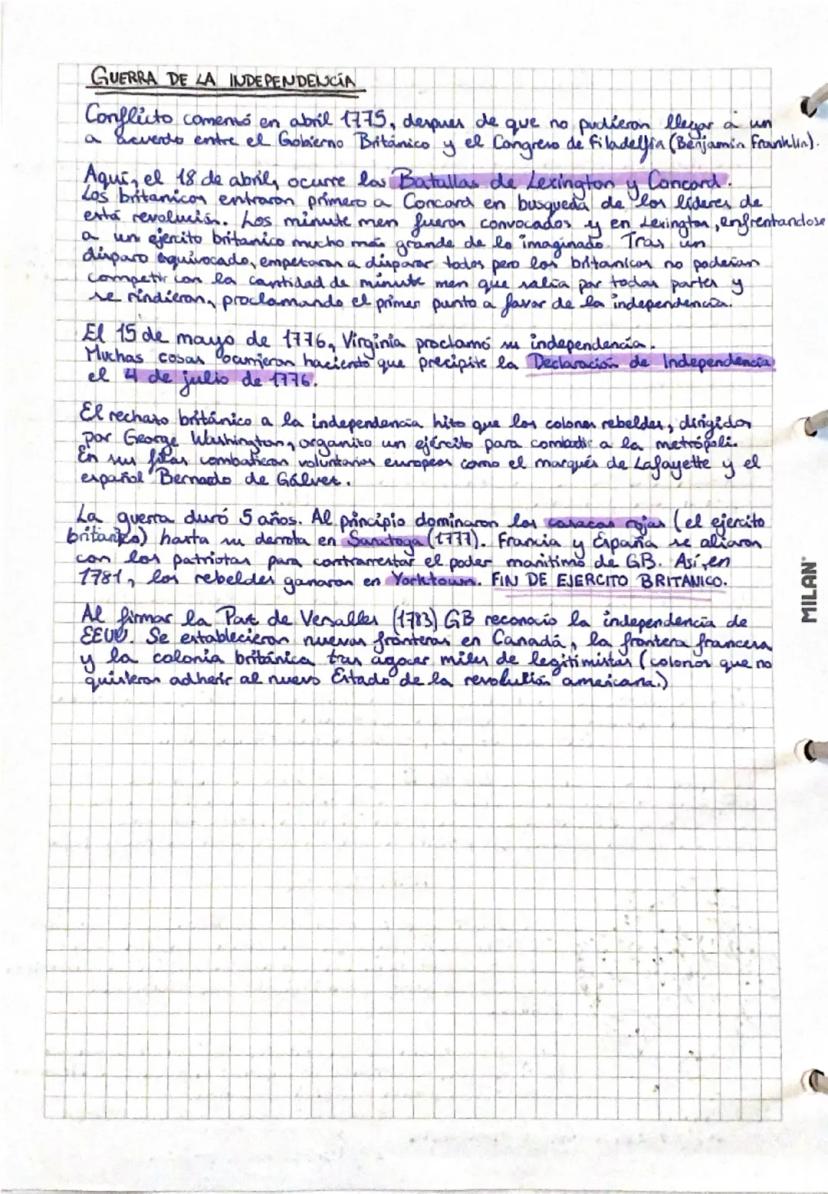 GUERRA DE LA INDEPENDENCIA
Conflicto comenzó en abril 1775, despues de que no pudieron llegar a un
a acuerdo entre el Gobierno Británico y el Congreso de Filadelfia (Benjamin Franklin).
Aquí, el 18 de abril, ocurre las Batallas de Lexington y Concord.
Los britanicos entraron primero a Concord en busqueda de los líderes de
está revolución. Los minute men fueron convocados y en Lexington, enfrentandose
a un ejercito britanico mucho más grande de lo imaginado. Tras un
disparo equivocado, empezaron a disparar todos pero los britanicos no poderían
competir con la cantidad de minute men que salía por todas partes y
se rindieron, proclamando el primer punto a favor de la independencia.
El 15 de mayo de 1776, Virginia proclamó su independencia.
Muchas cosas ocurrieron haciendo que precipite la Declaración de Independencia
el 4 de julio de 1776.
El rechazo británico a la independencia hizo que los colonos rebeldes, dirigidos
por George Washington, organizo un ejército para combatir a la metrópoli.
En sus filas combatieron voluntarios europeos como el marqués de Lafayette y el
español Bernado de Gálvez.
La guerra duró 5 años. Al principio dominaron los casacas rojas (el ejercito
britanico) hasta su derrota en Saratoga (1777). Francia y España se aliaron
con los patriotas para contrarrestar el poder maritimo de GB. Así, en
1781, los rebeldes ganaron en Yorktown. FIN DE EJERCITO BRITANICO.
Al firmar la Paz de Versalles (1783) GB reconocio la independencia de
EEUU. Se establecieron nuevas fronteras en Canadá, la frontera francesa
y la colonia británica tras acoger miles de legitimistas (colonos que no
quisieron adherir al nuevo Estado de la revolución americana.)
MILAN